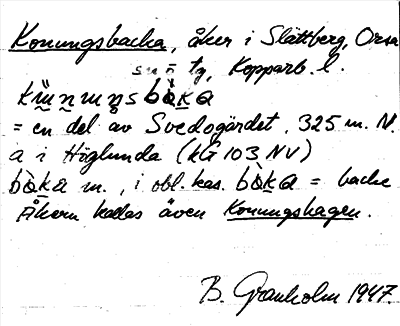 Konungsbacka, åker i Slättberg, Orsa
sn o tg, Kopparb. l.
= en del av Svedogärdet, 325 m. N.
a i Höglunda (kG 103 NV)
m., i obl. kas. = backe
Åkern kallas även Konungshagen.
B. Granholm 1947.